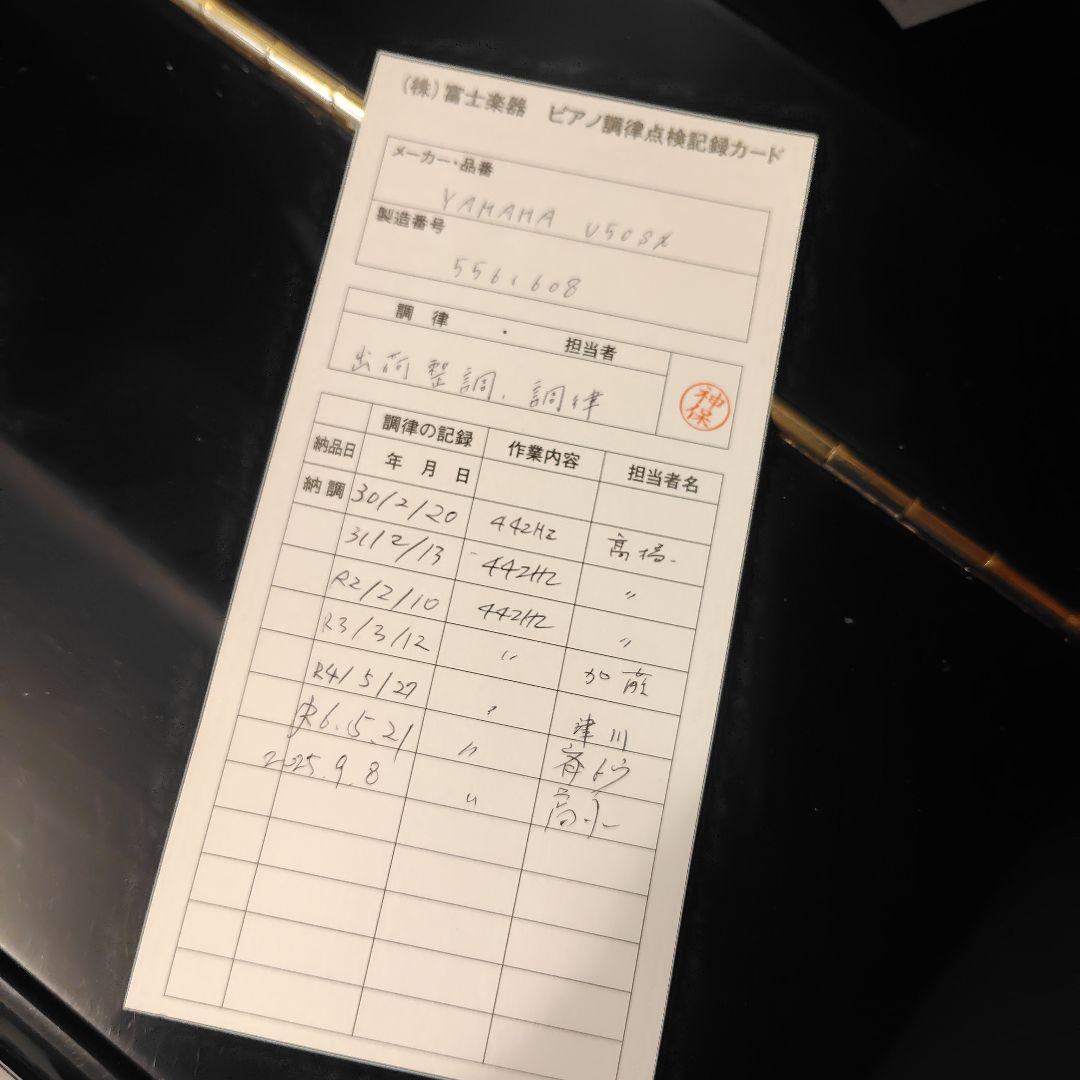 (株)富士楽器 ピアノ調律点検記録カード
メーカー・品番
YAMAHA U50SX
製造番号
5561608
調 律 ・ 担当者
出荷整調、調律
神保
調律の記録 作業内容 担当者名
納品日 年 月 日
納調 30/2/20 442Hz 高橋
31/2/13 442Hz 〃
R2/2/10 442Hz 〃
R3/3/12 〃 加藤
R4/5/27 〃 津川
R6.5.21 〃
2025.9.8 〃